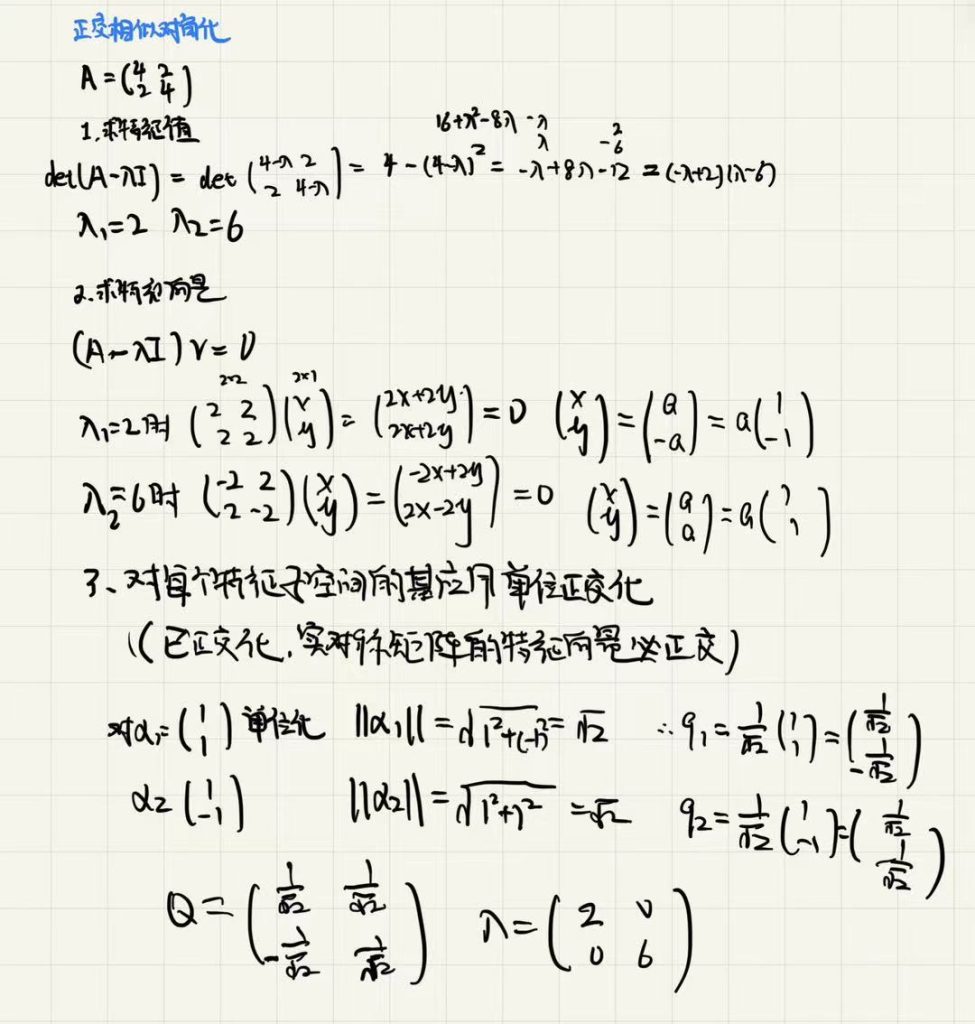 正交相似对角化
A = (4 2; 2 4)
1.求特征值
16+λ²-8λ -λ 2
λ -6
det(A-λI) = det (4-λ 2; 2 4-λ) = 4-(4-λ)² = -λ+8λ-12 = (-λ+2)(λ-6)
λ₁=2 λ₂=6
2.求特征向量
(A-λI) v = 0
2×2 2×1
λ₁=2时 (2 2; 2 2)(x; y) = (2x+2y; 2x+2y) = 0 (x; y) = (a; -a) = a(1; -1)
λ₂=6时 (-2 2; 2 -2)(x; y) = (-2x+2y; 2x-2y) = 0 (x; y) = (a; a) = a(1; 1)
3、对每个特征子空间的基应用单位正交化
(已正交化,实对称矩阵的特征向量必正交)
对α₁=(1; 1)单位化 ||α₁|| = √1²+(-1)² = √2 ∴ q₁ = 1/√2 (1; 1) = (1/√2; -1/√2)
α₂ (1; -1) ||α₂|| = √1²+1² = √2 q₂ = 1/√2 (1; -1) = (1/√2; 1/√2)
Q = (1/√2 1/√2; -1/√2 1/√2) λ = (2 0; 0 6)